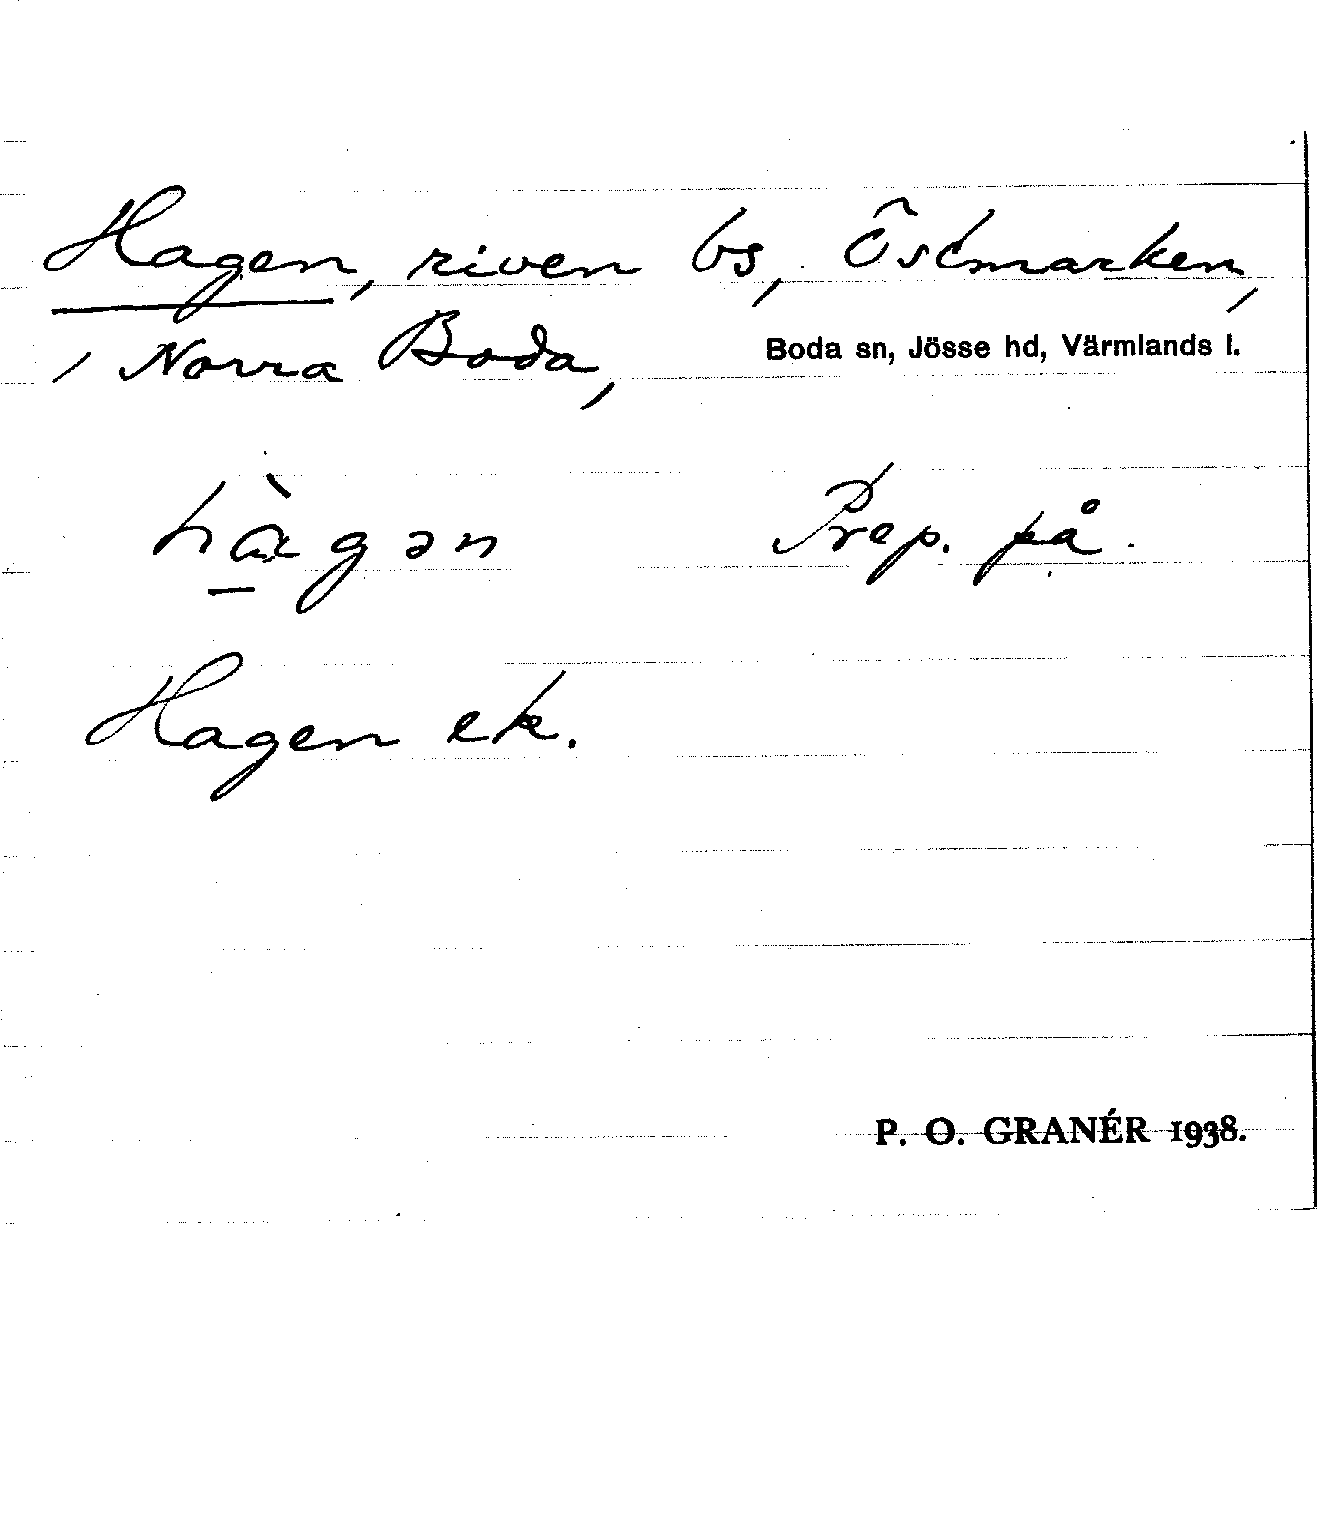 Hagen, riven bs, Östmarken,
, Norra Boda, Boda sn, Jösse hd, Värmlands l.
hàgən Prep. på.
Hagen ek.
P. O. GRANÉR 1938.